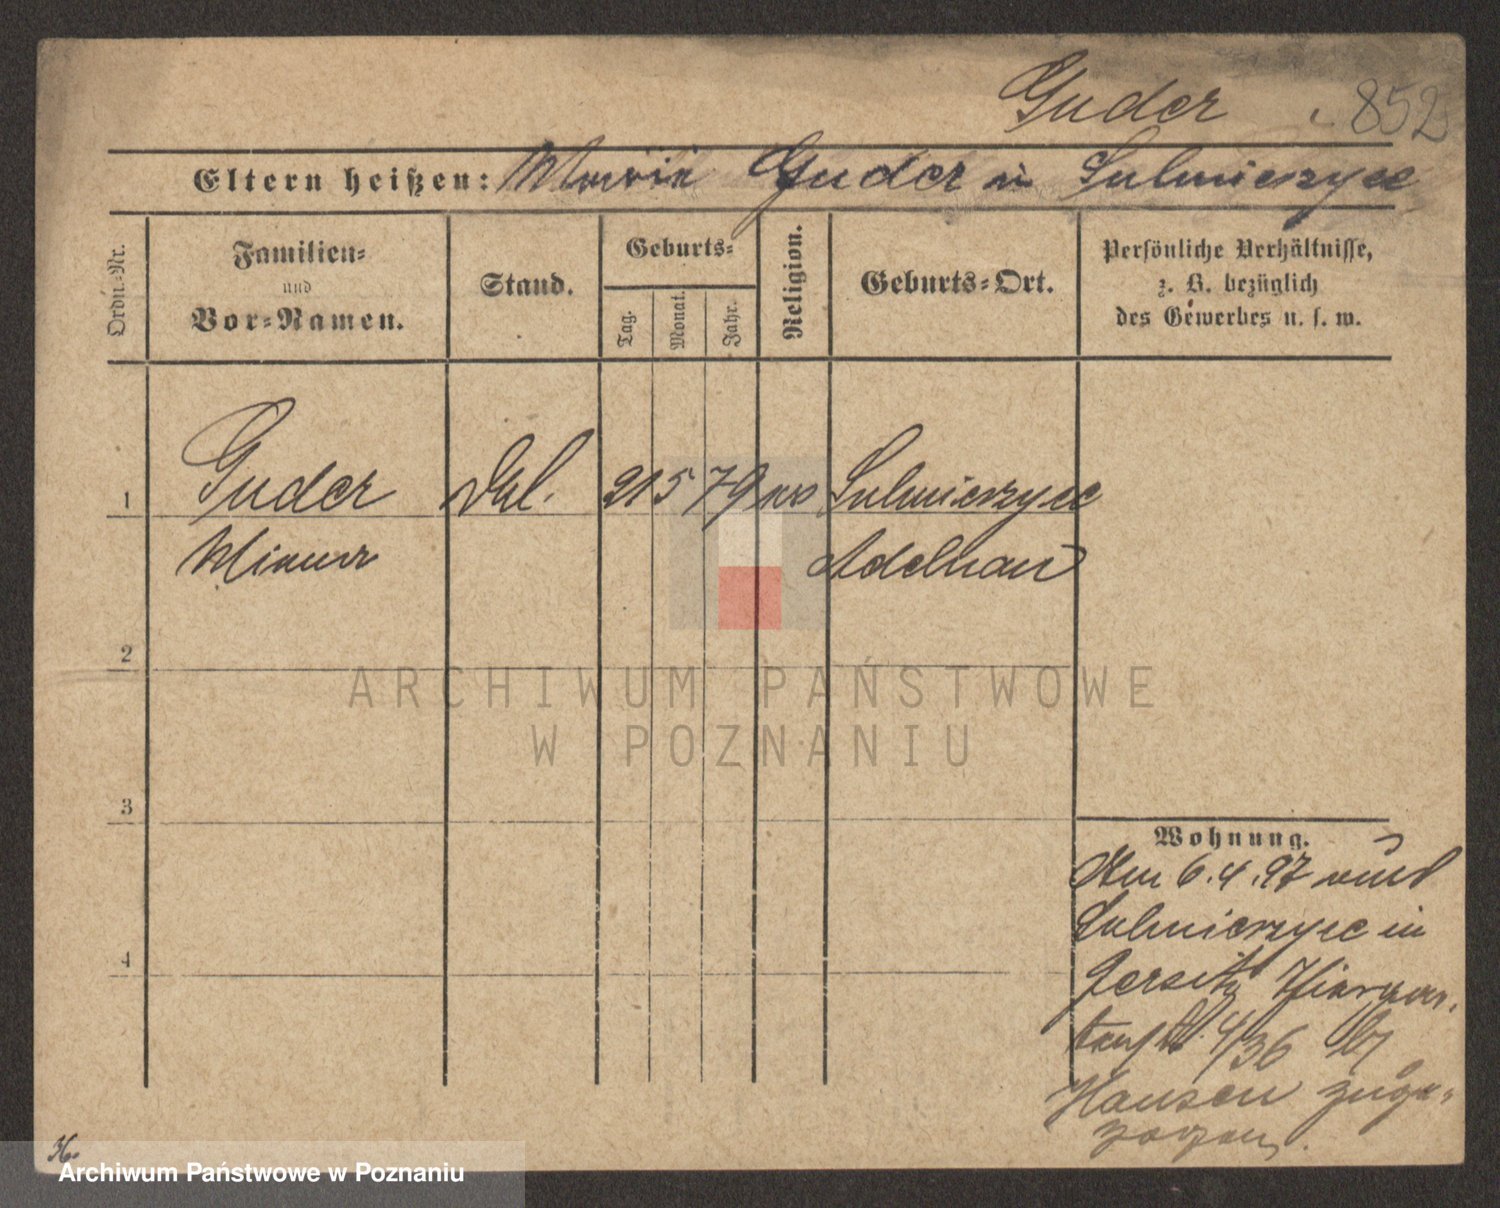 Guder 852
Eltern heißen: Maria Guder in Sulmierzyce
Ordn.-Nr.
Familien-
und
Vor-Namen.
Stand.
Geburts-
Tag.
Monat.
Jahr.
Religion.
Geburts-Ort.
Persönliche Verhältnisse,
z. B. bezüglich
des Gewerbes u. s. w.
1 Guder 21 5 79 Sulmierzyce
Adelnau
2
3
4
Wohnung.
6.4.97
Sulmierzyce in
Jersitz
4/36
Hansen zuge-
zogen.
ARCHIWUM PAŃSTWOWE
W POZNANIU
Archiwum Państwowe w Poznaniu